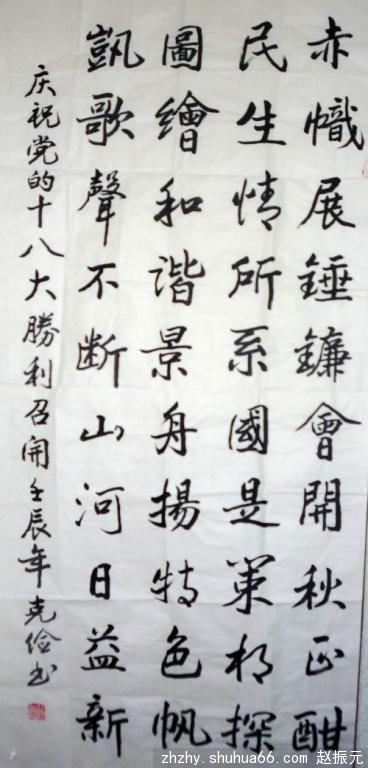 赤幟展錘鐮會開秋正酣
民生情所系國是策相探
圖繪和谐景舟揚特色帆
凱歌聲不断山河日益新
庆祝党的十八大勝利召開壬辰年克俭书
zhzhy.shuhua66.com 赵振元